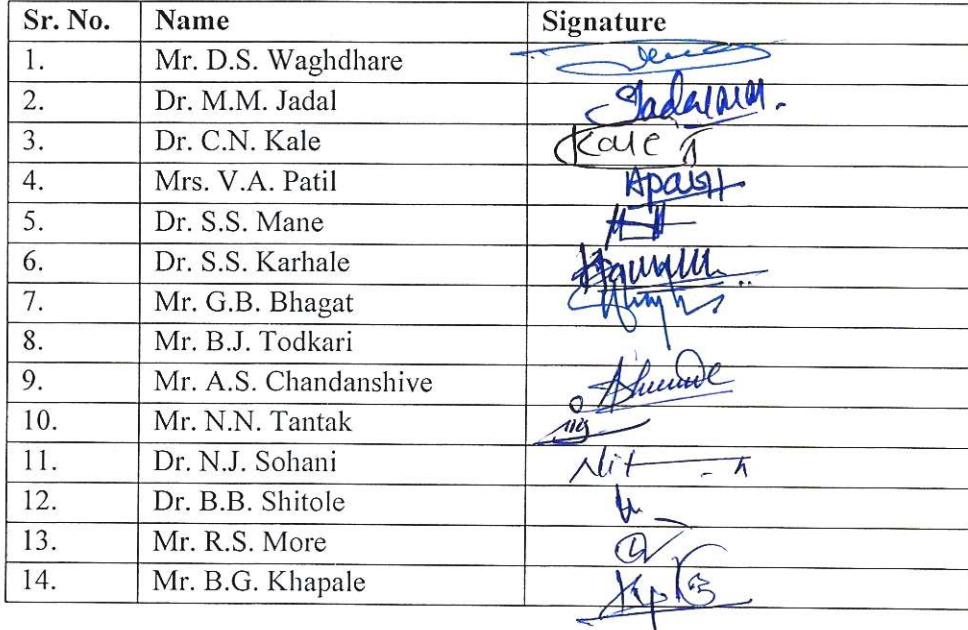 Sr. No. Name Signature
1. Mr. D.S. Waghdhare
2. Dr. M.M. Jadal
3. Dr. C.N. Kale Kale
4. Mrs. V.A. Patil
5. Dr. S.S. Mane
6. Dr. S.S. Karhale
7. Mr. G.B. Bhagat
8. Mr. B.J. Todkari
9. Mr. A.S. Chandanshive
10. Mr. N.N. Tantak
11. Dr. N.J. Sohani
12. Dr. B.B. Shitole
13. Mr. R.S. More
14. Mr. B.G. Khapale